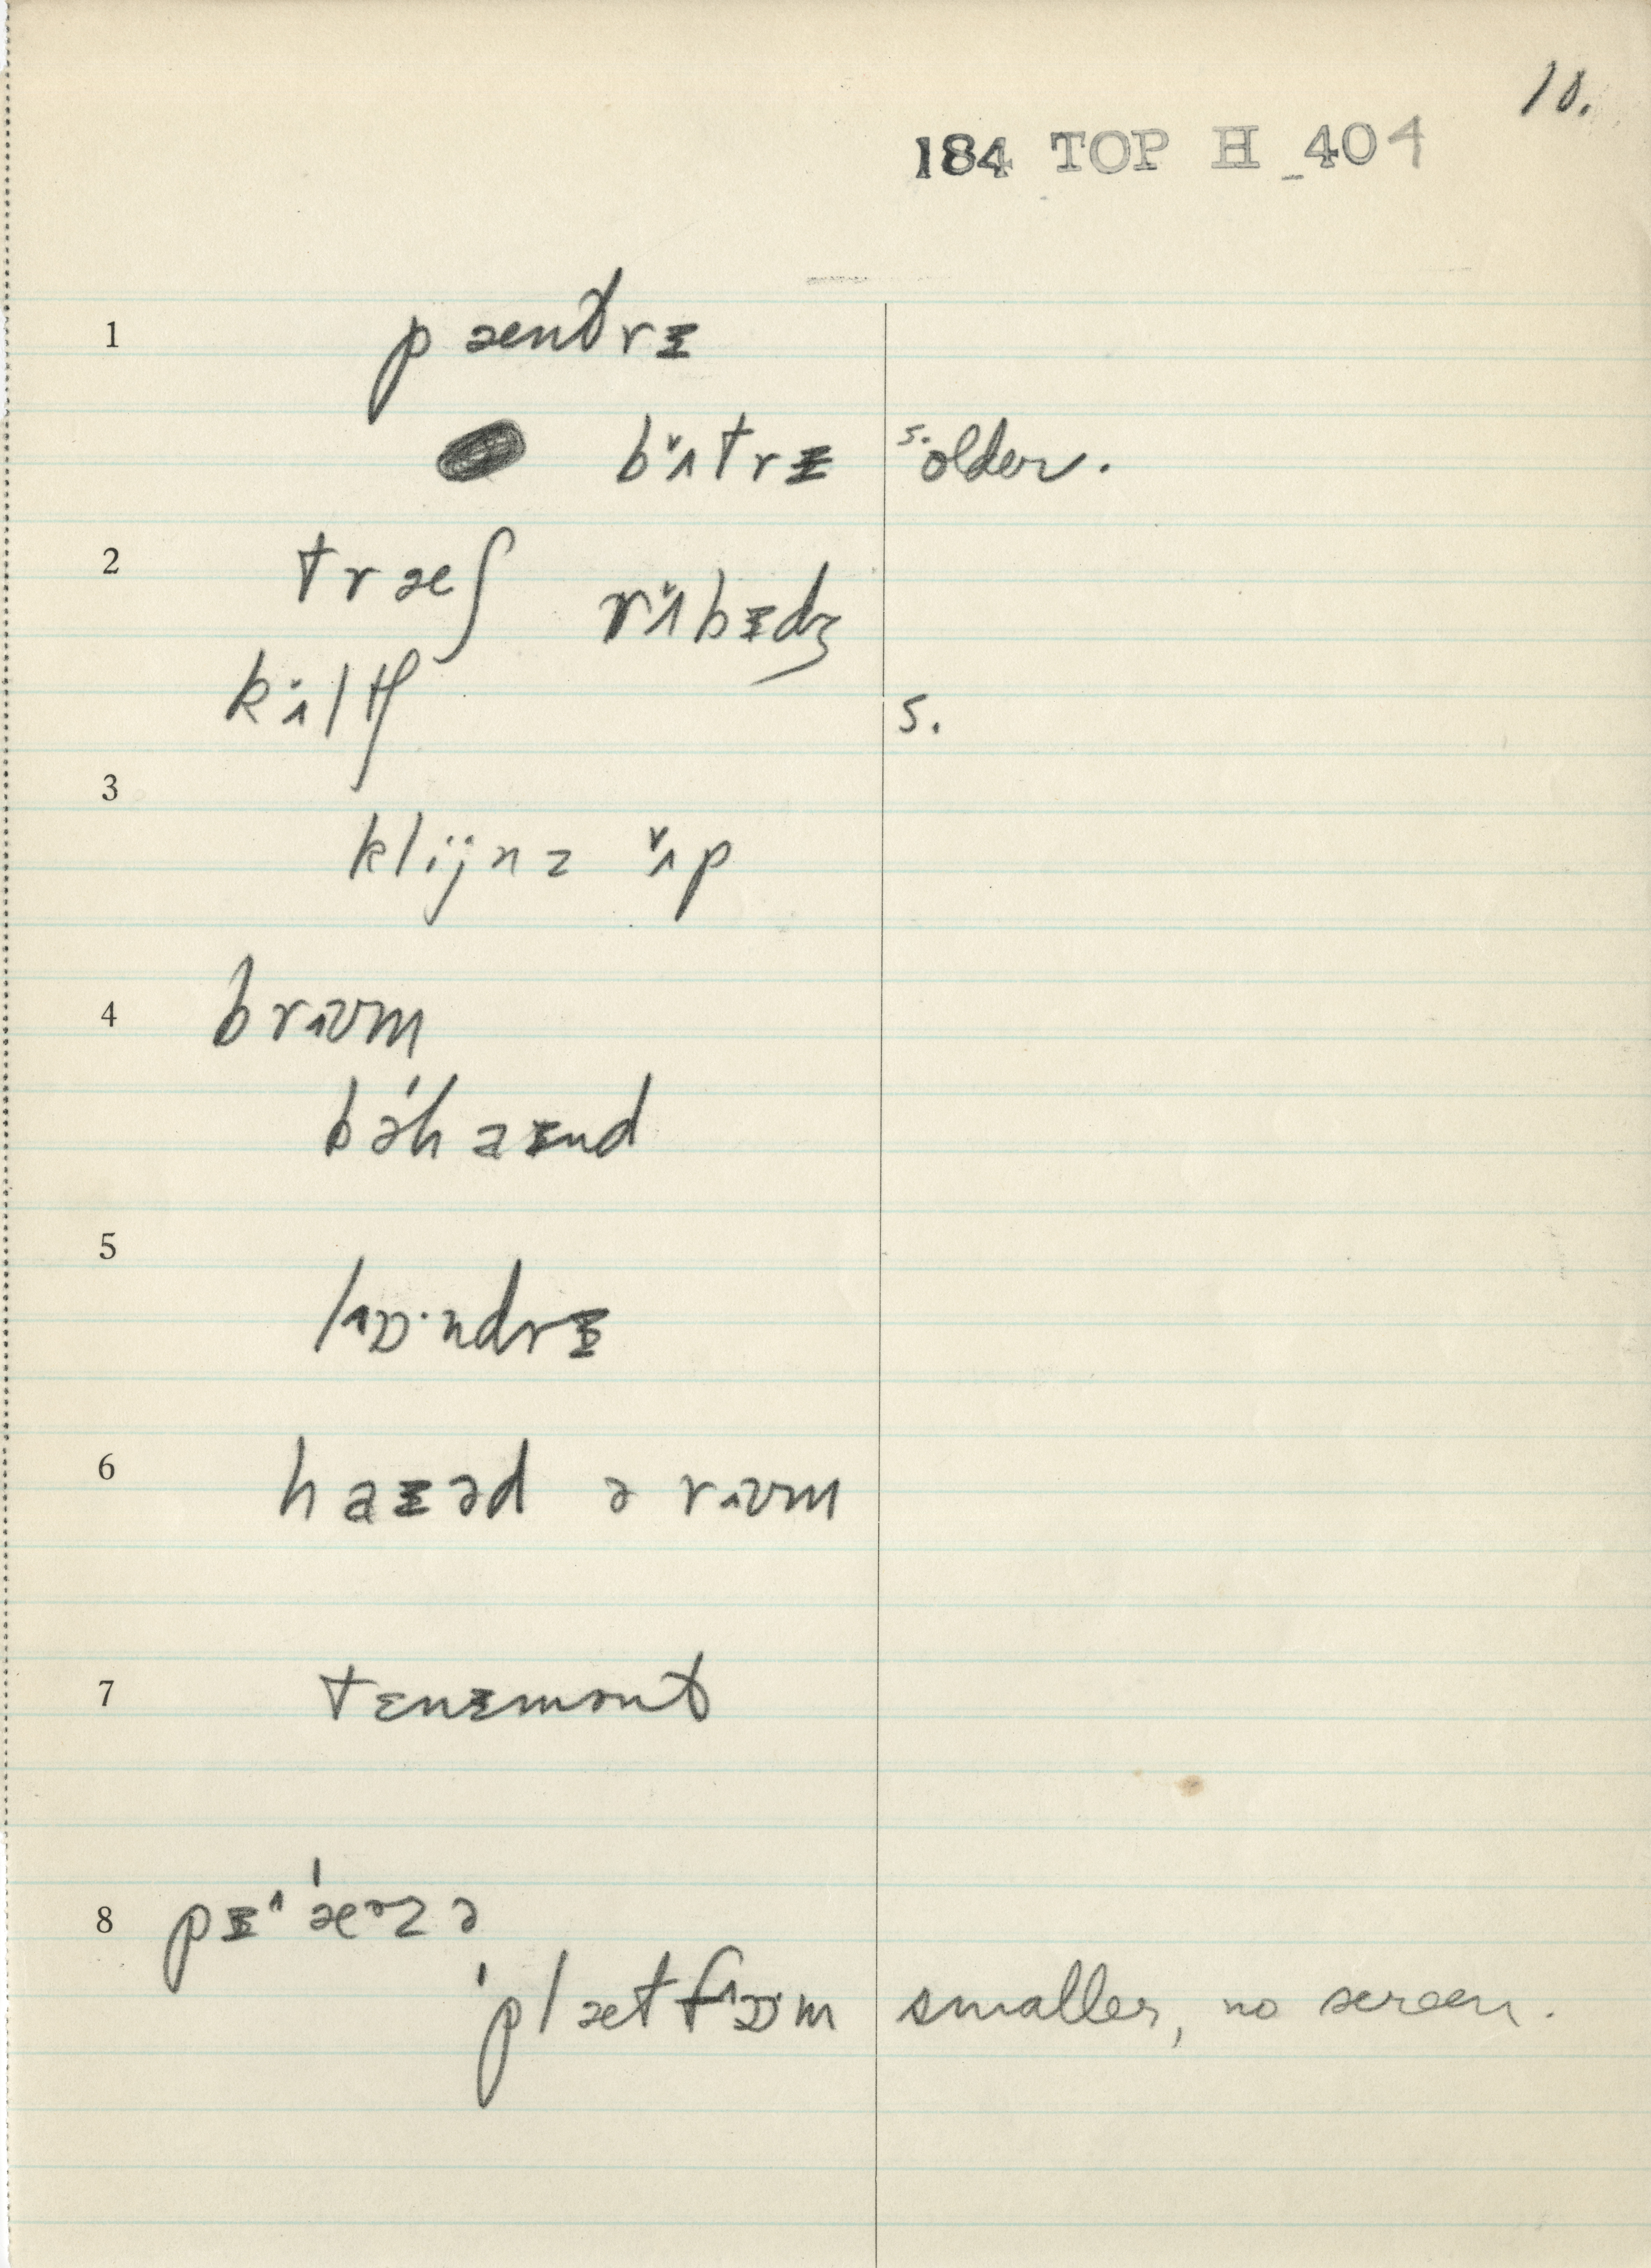 10.
184 TOP H 404
1 pæntrɪ
bʌ̌trɪ s. older.
2 træʃ rʌ̌bɪdʒ
kʌ̇ltʃ s.
3 klijnz ʌ̌p
4 brʊm
bəhaɪnd
5 lɒ·ndrɪ
6 haɪəd ə rʊm
7 tɛnɪmənt
8 pɪˈæᵊzə
ˈplætfɒˑm smaller, no screen.